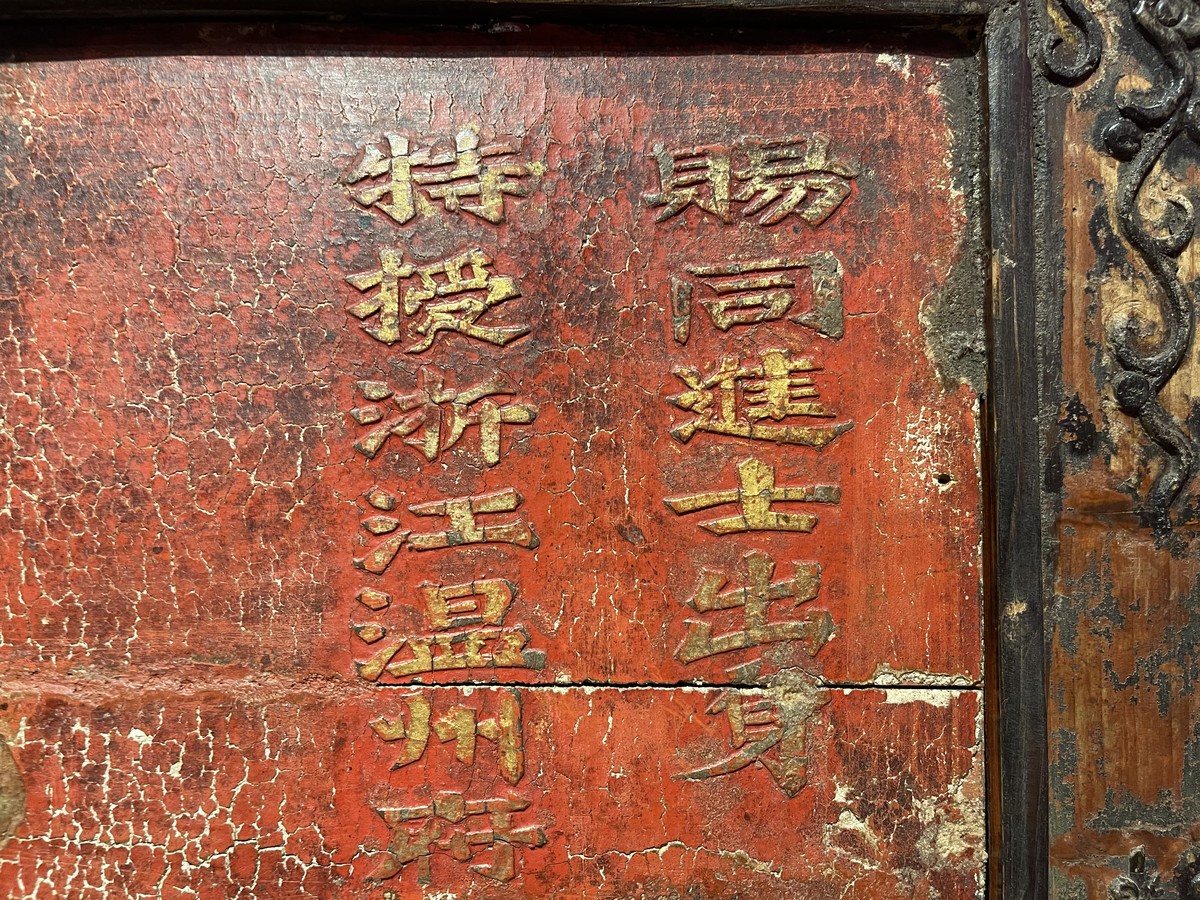 賜同進士出身
特授浙江温州府